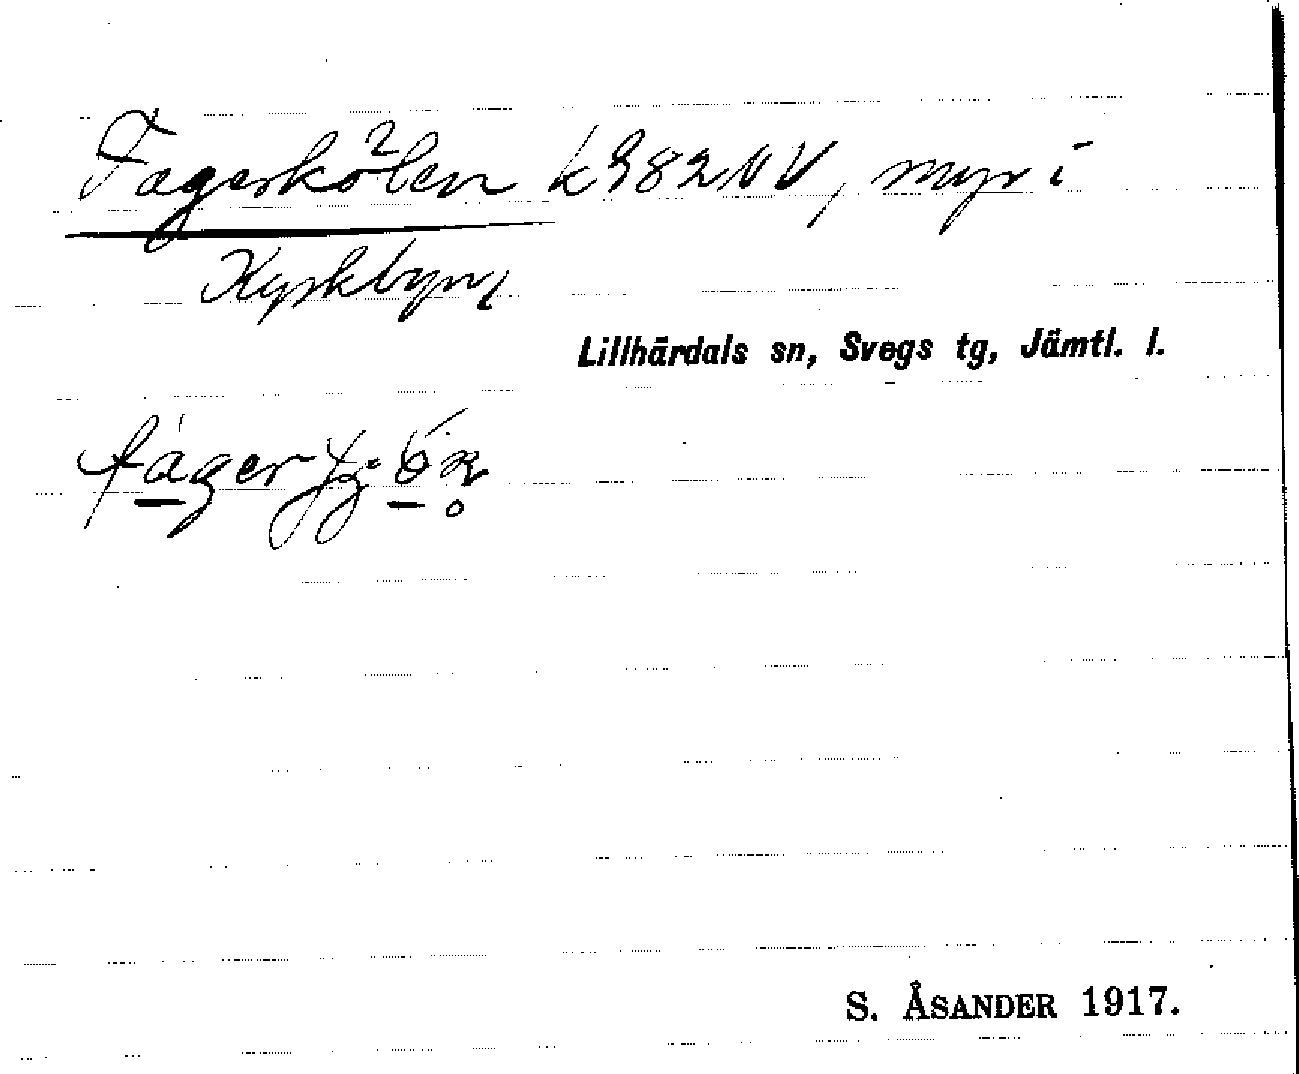 Fagerskölen 2 k 982 NV, myr i
Kyrkbyn,
Lillhärdals sn, Svegs tg, Jämtl. l.
S. ÅSANDER 1917.